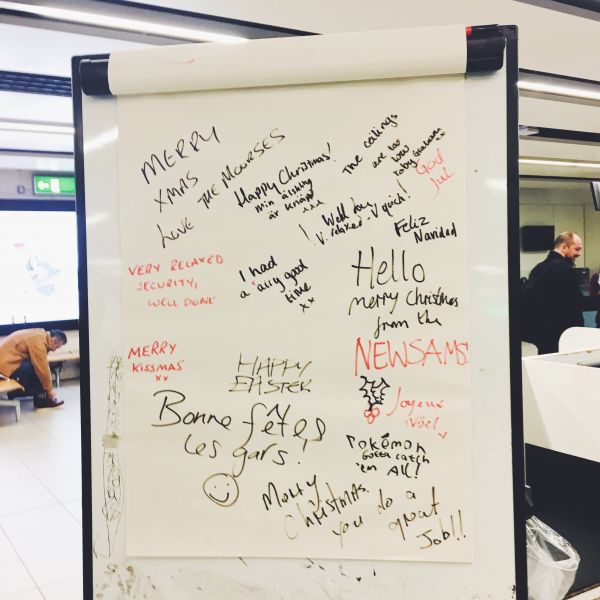 MERRY
XMAS
LOVE THE MOORSES
Happy Christmas!
min älskling
är knäpp
xxx
The ceilings
are too
low
Toby Graham
xx
God
Jul
Well boy
V. relaxed. V quick!
Feliz
Navidad
VERY RELAXED
SECURITY,
WELL DONE
I had
a very good
time
xx
Hello
merry Christmas
from the
NEWSAMS
MERRY
KISSMAS
xx
HAPPY
EASTER
Joyeux
Nöel
Bonne fêtes
les gars!
Pokémon
Gotta catch
'em All!
Merry
Christmas.
you do a
great
Job!!